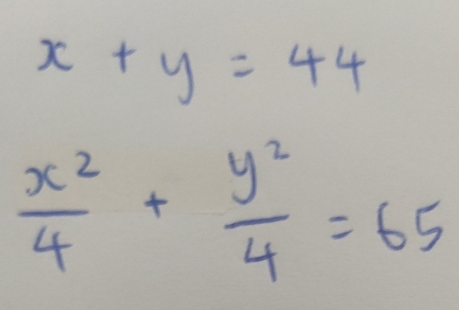 x + y = 44
x²/4 + y²/4 = 65